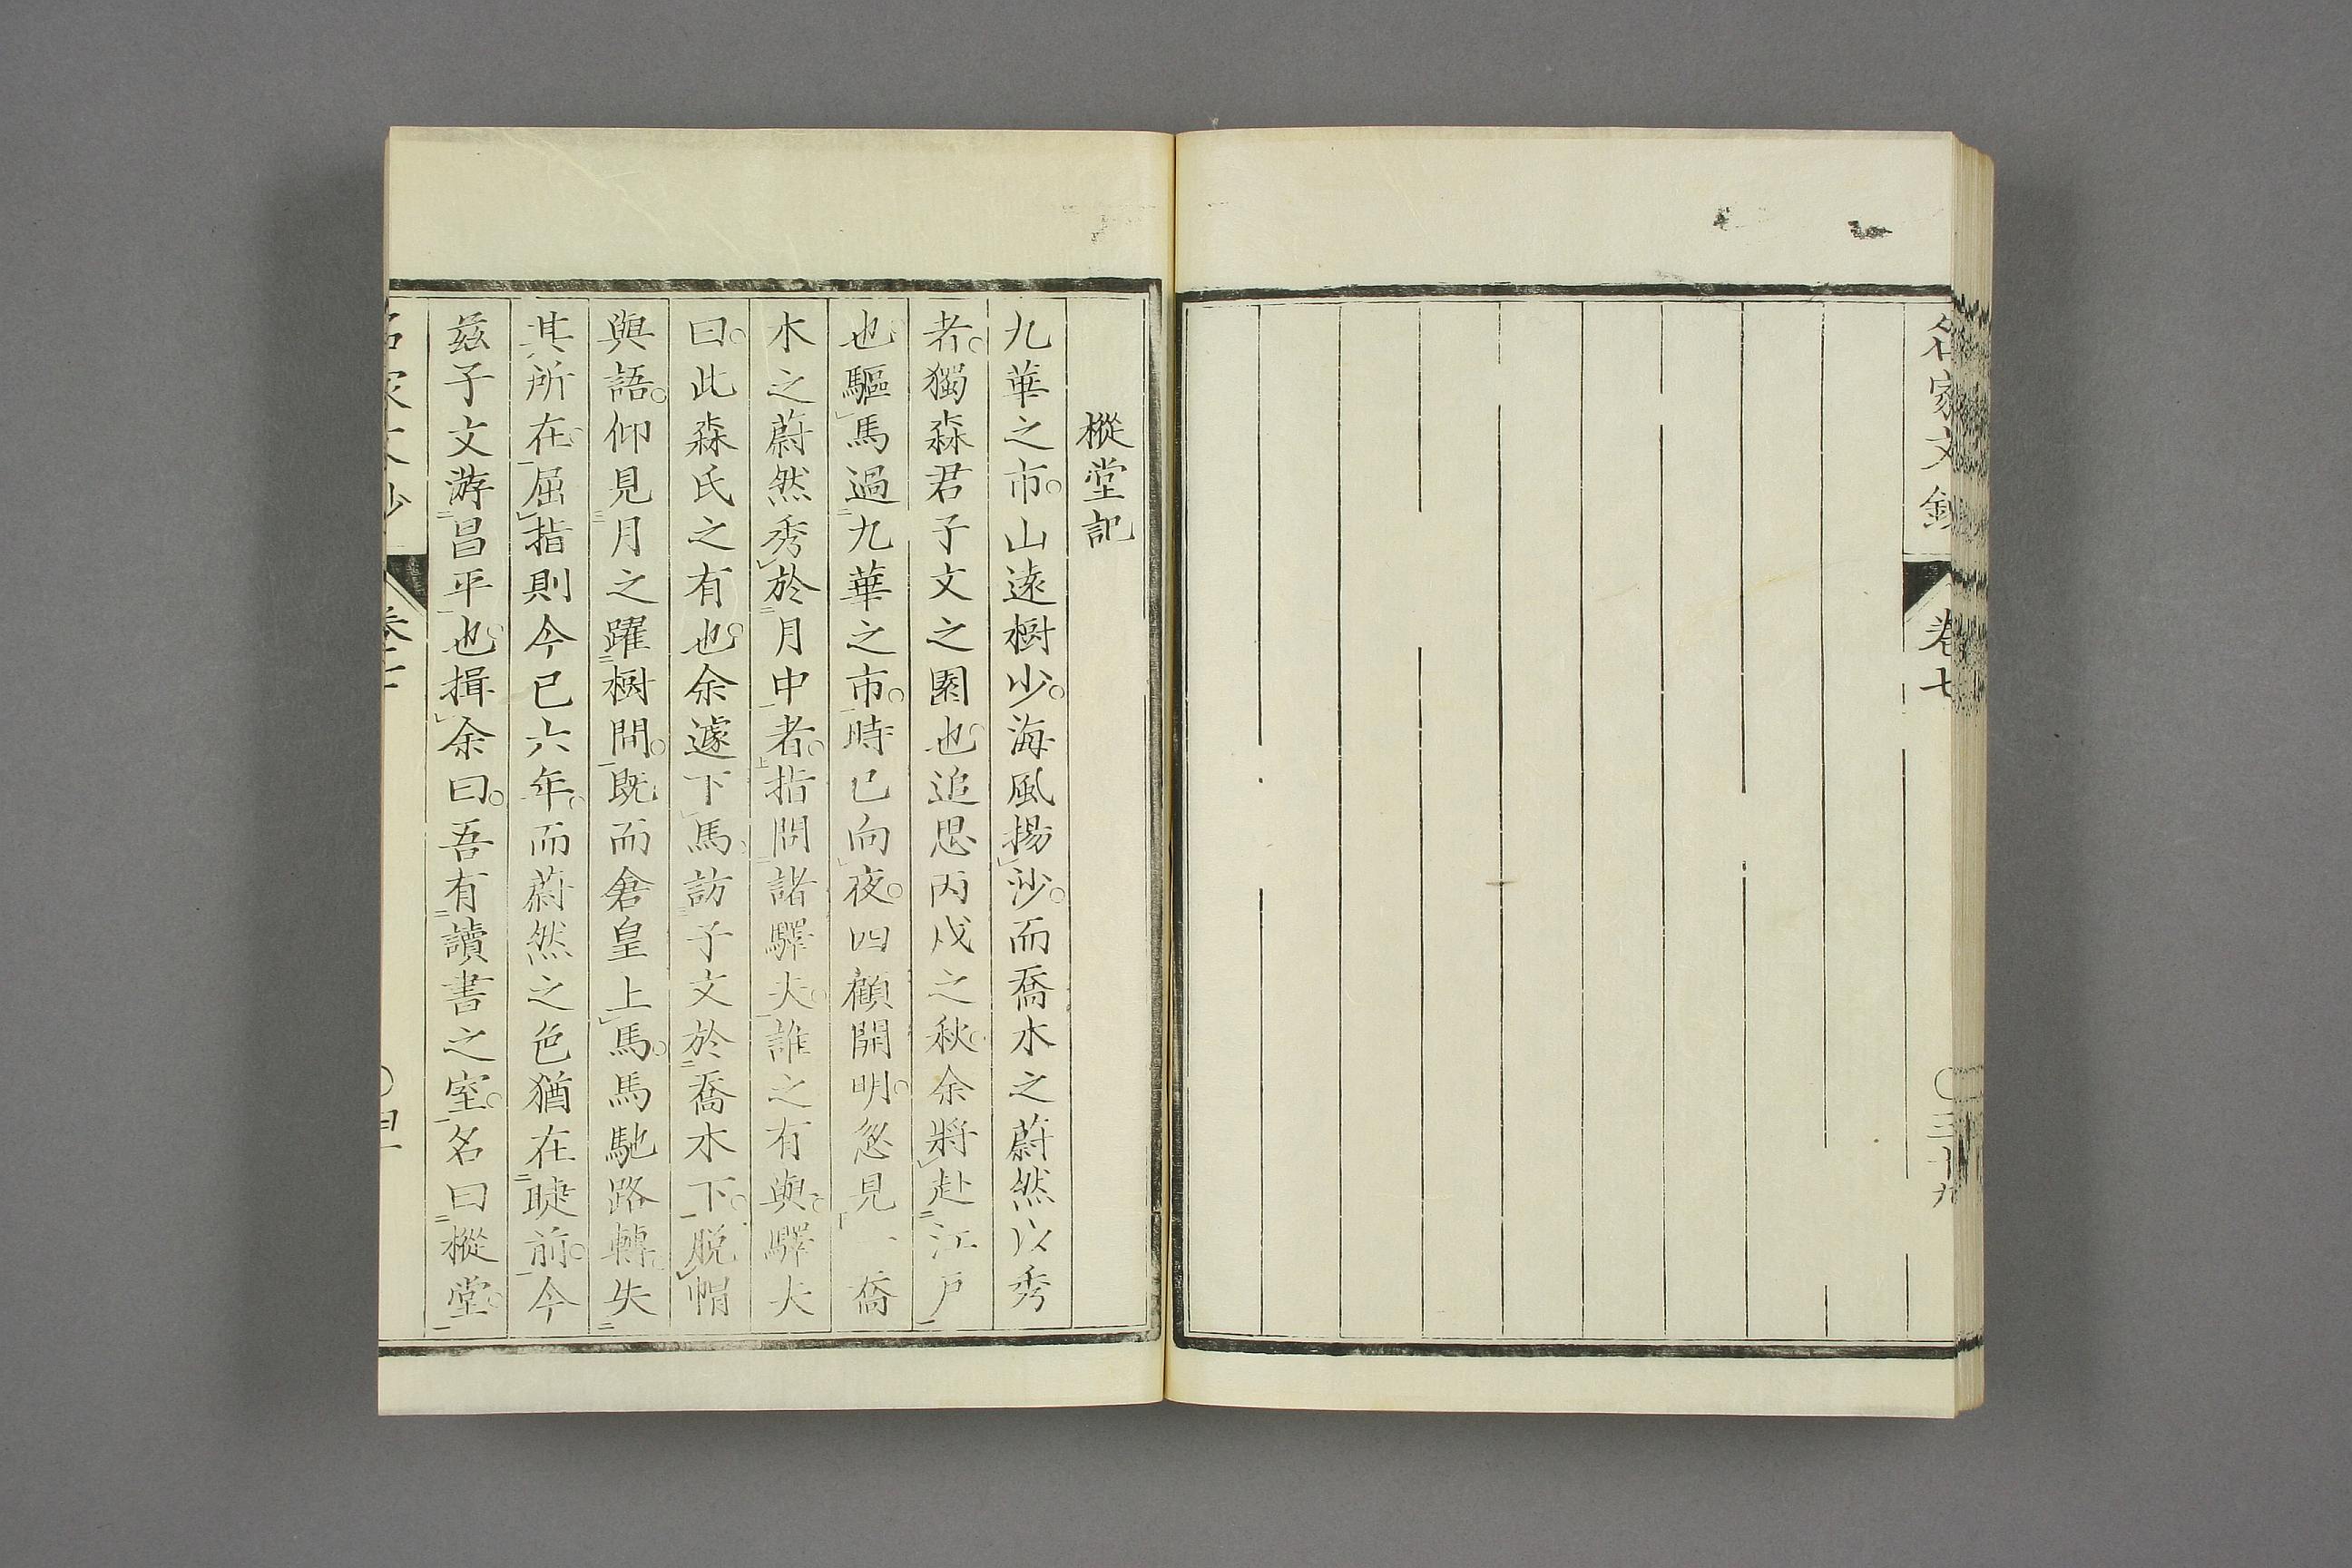 名家文鈔 卷七 〇三十九
樅堂記
九華之市。山遠樹少。海風揚沙。而喬木之蔚然以秀
者。獨森君子文之園也。追思丙戌之秋。余將赴江戸
也。驅馬過九華之市。時已向夜。四顧開明。忽見一喬
木之蔚然秀於月中者。指問諸驛夫。誰之有與。驛夫
曰。此森氏之有也。余遽下馬。訪子文於喬木下。脱帽
與語。仰見月之躍樹間。既而倉皇上馬。馬馳路轉。失
其所在。屈指則今已六年。而蔚然之色猶在睫前。今
茲子文游昌平也。揖余曰。吾有讀書之室。名曰樅堂。